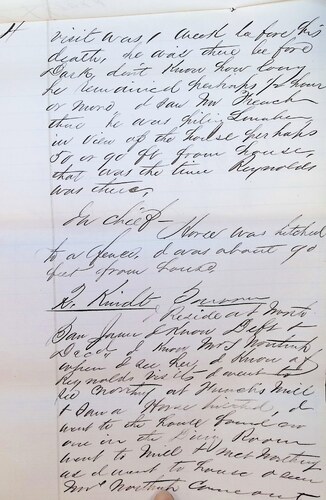 visit was 1 week before his
death, he was there before
Dark, don't know how long
he remained perhaps ½ hour
or more I saw Mr French
there he was piling Lumber
in view of the house perhaps
50 or 90 ft from house
that was the time Reynolds
was there,
In chief Horse was hitched
to a fence I was about 90
feet from house
Sworn
I reside at North
San Juan I know Deft &
Decd I know Mrs
when I see her, I know of
Reynolds visits I went to
at French's Mill
& saw a Horse hitched, I
went to the house found no
one in the Dining Room
went to Mill & met
as I went to house I saw
Mrs come out